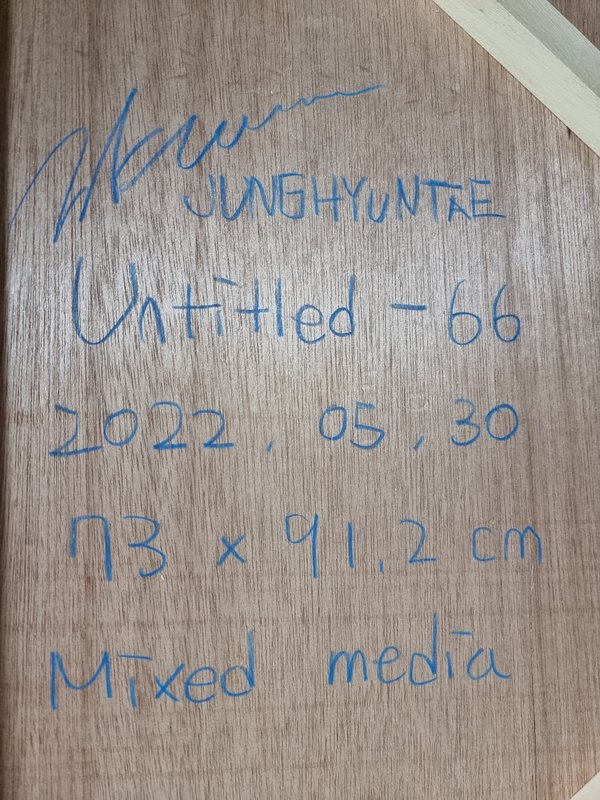 JUNGHYUNTAE
Untitled - 66
2022. 05. 30
73 x 91.2 cm
Mixed media